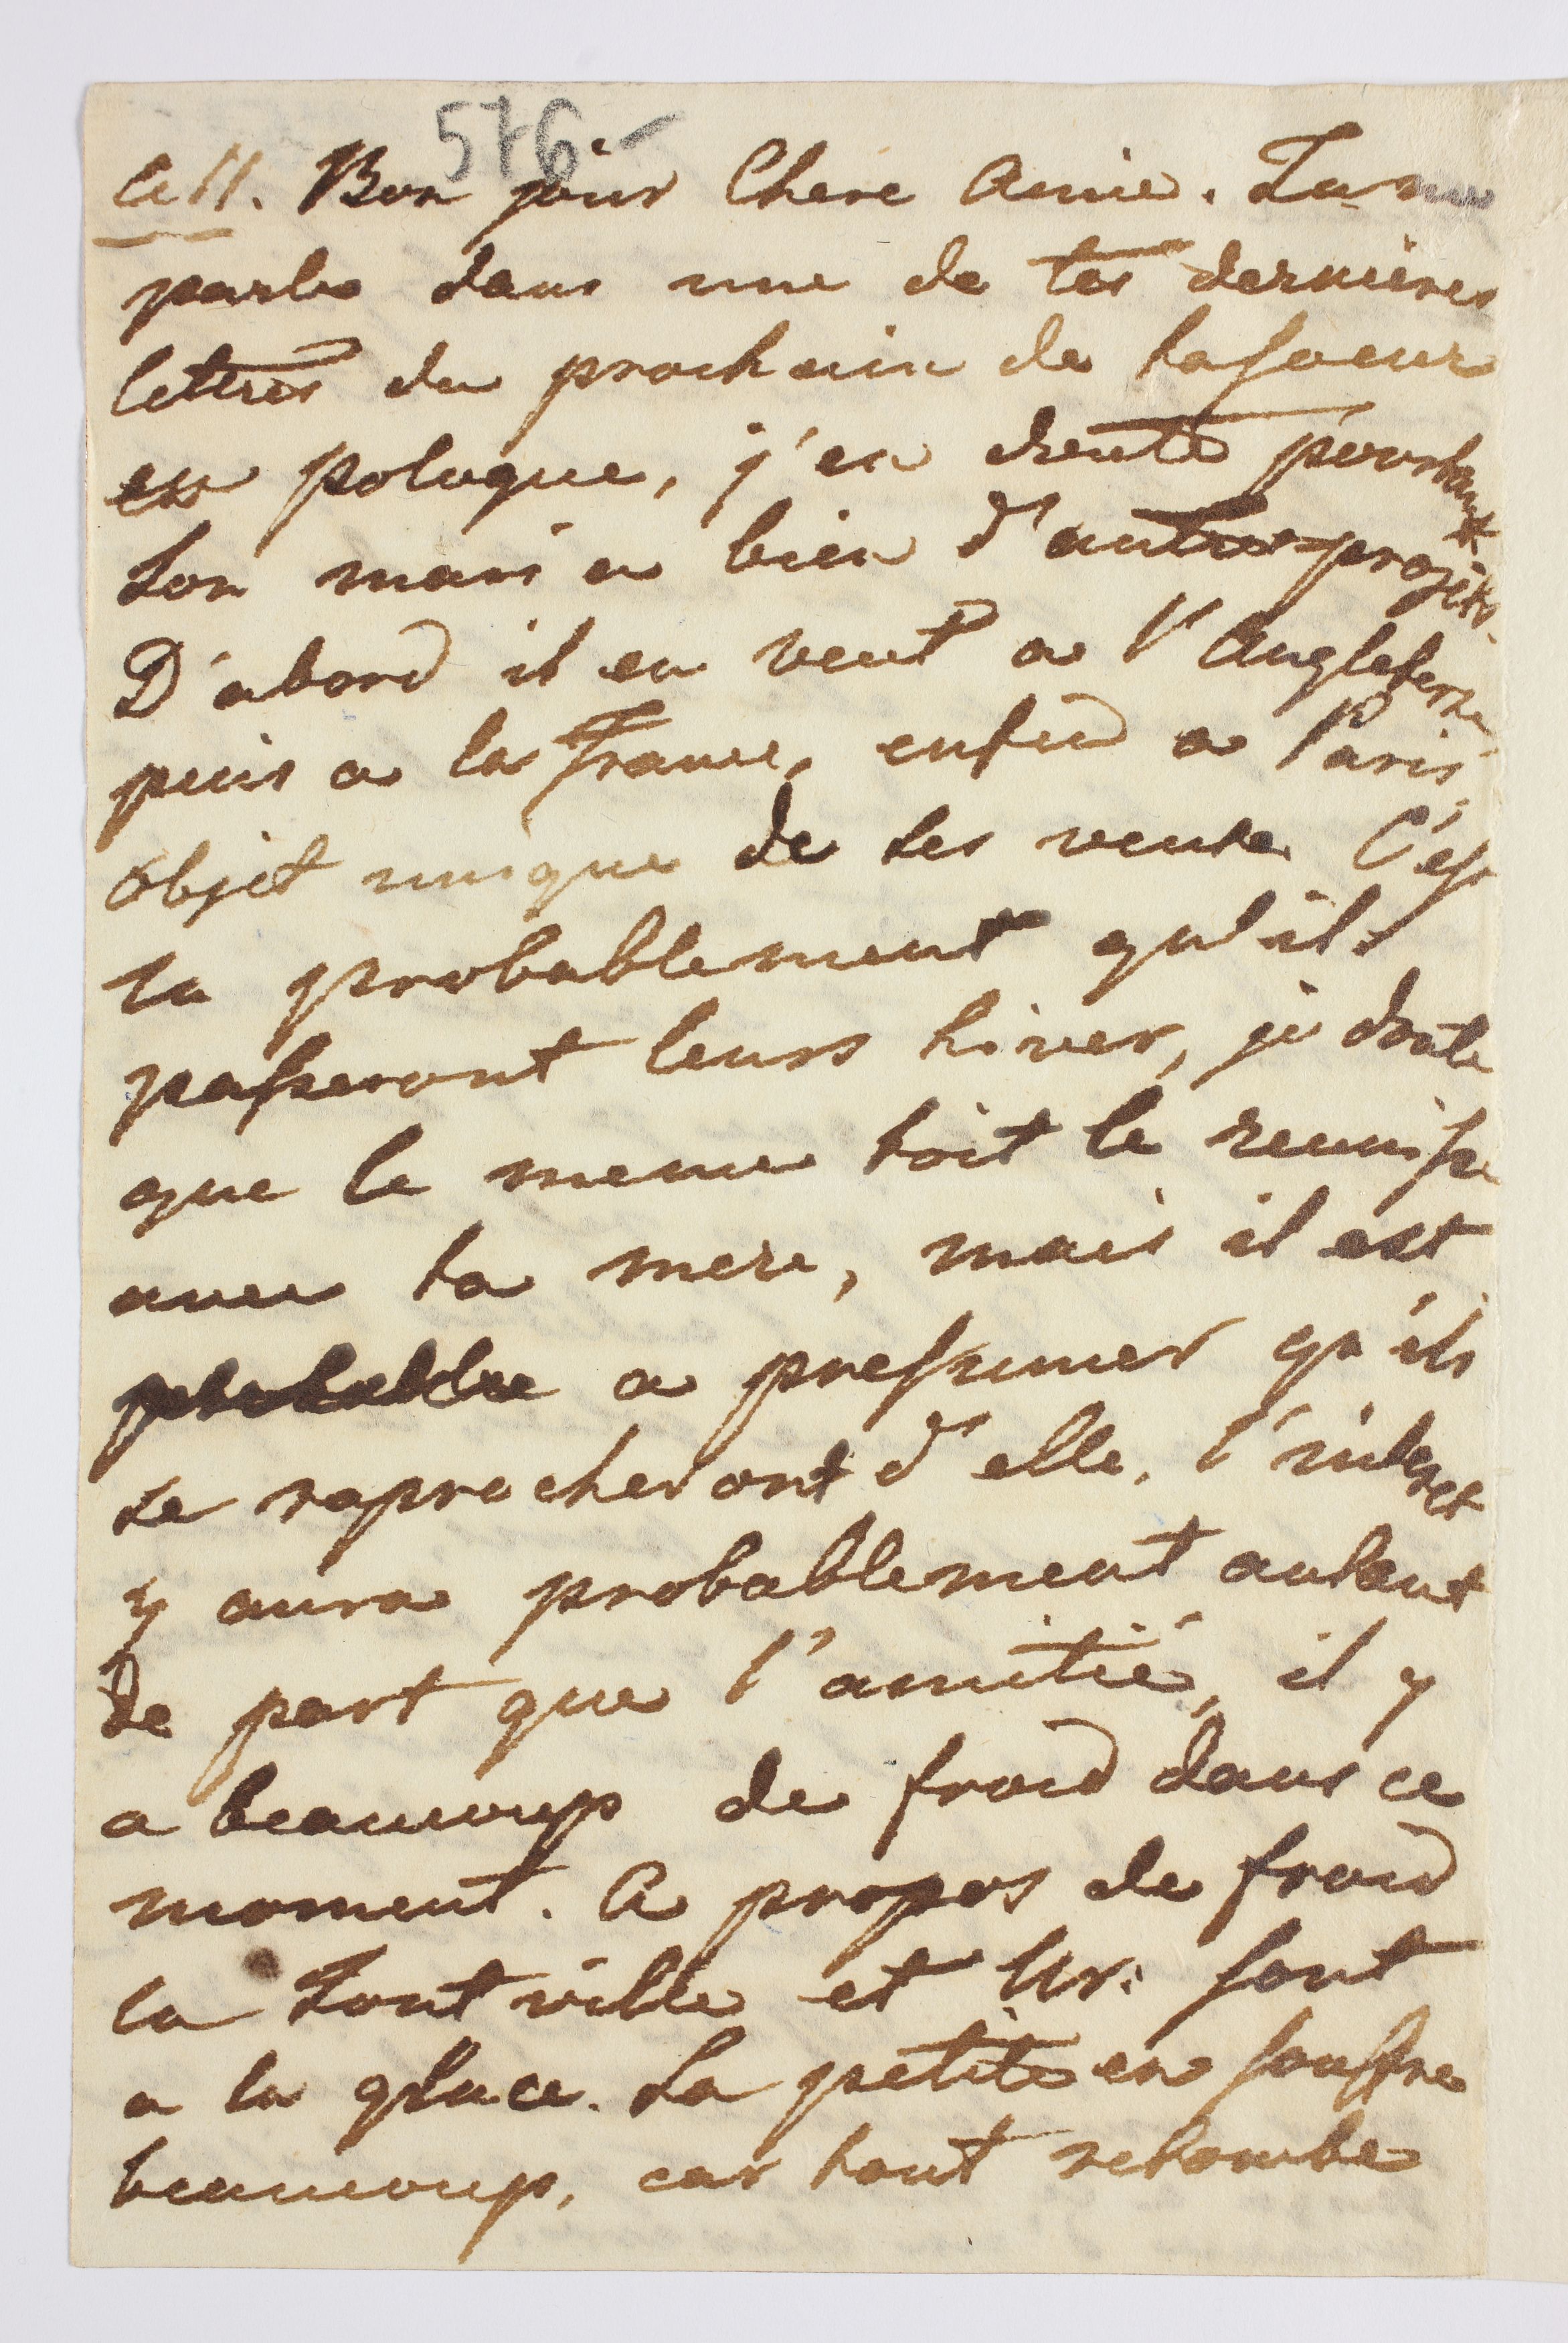 576.-
le 11. Bon jour Chere Amie. Tu me
parles dans une de tes dernieres
lettres du prochain de ta soeur
en pologne, j'en doute pourtant
son mari a bien d'autres projets.
D'abord il en veut a l'Angleterre
puis a la France, enfin a Paris,
objet unique de ses voeux. C'est
la probablement qu'ils
passeront leurs hiver, je doute
que le meme toit le reunisse
avec ta mere, mais il est
probable a presumer qu'ils
se raprocheront d'elle, l'interet
y aura probablement autant
de part que l'amitié, il y
a beaucoup de froid dans ce
moment. A propos de froid
la et Ur: sont
a la glace. La petite en souffre
beaucoup, car tout retombe